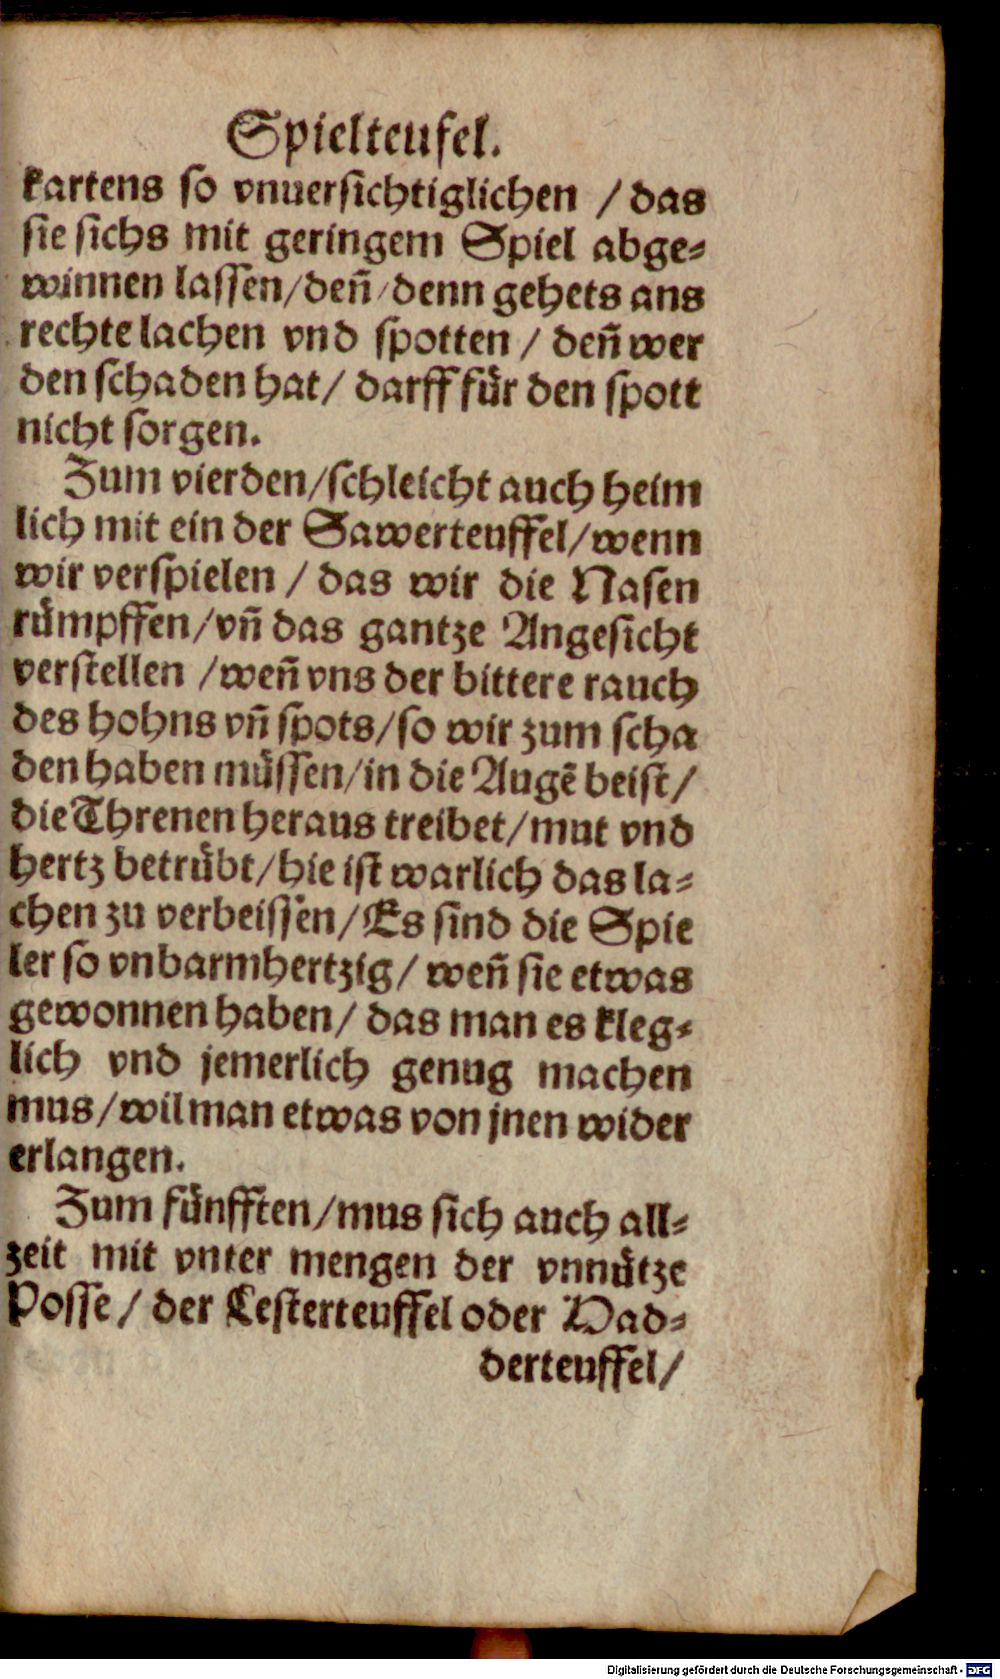 Spielteufel.
kartens so vnuersichtiglichen / das
sie sichs mit geringem Spiel abge⸗
winnen lassen/deñ/denn gehets ans
rechte lachen vnd spotten / deñ wer
den schaden hat/ darff für den spott
nicht sorgen.
Zum vierden/schleicht auch heim
lich mit ein der Sawerteuffel/wenn
wir verspielen / das wir die Nasen
rümpffen/vñ das gantze Angesicht
verstellen /weñ vns der bittere rauch
des hohns vñ spots/so wir zum scha
den haben müssen/in die Augē beist/
die Threnen heraus treibet/mut vnd
hertz betrübt/hie ist warlich das la⸗
chen zu verbeissen/Es sind die Spie
ler so vnbarmhertzig/ weñ sie etwas
gewonnen haben/ das man es kleg⸗
lich vnd jemerlich genug machen
mus/wil man etwas von jnen wider
erlangen.
Zum fünfften/mus sich auch all⸗
zeit mit vnter mengen der vnnütze
Posse/ der Lesterteuffel oder Had⸗
derteuffel/
Digitalisierung gefördert durch die Deutsche Forschungsgemeinschaft - DFG